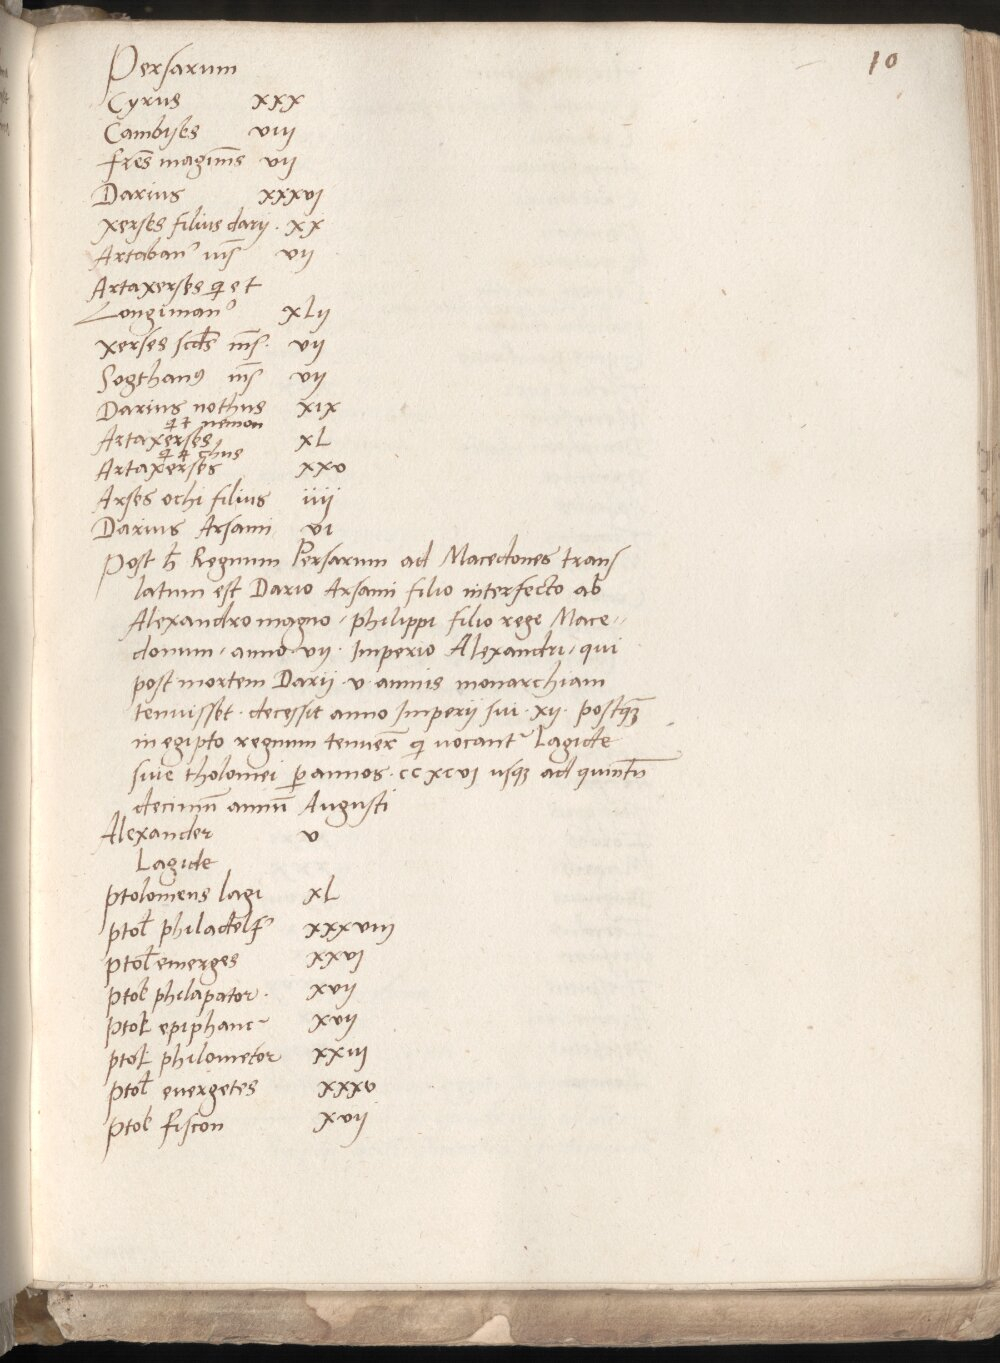 10
Persarum
Cyrus xxx
Cambises viij
fres̄ magim̄s vij
Darius xxxvj
xerses filius darij · xx
Artaban᾽ m̄s vij
Artaxerses q̄ et
Longiman᾽ xLij
xerses scd̄s m̄s · vij
Sogthanꝰ m̄s vij
Darius nothus xix
q̄ t nemon
Artaxerses xL
q̄ t chus
Artaxerses xxv
Arses ochi filius iiij
Darius Arsami vi
Post h̄ Regnum Persarum ad Macedones trans
latum est Dario Arsami filio interfecto ab
Alexandro magno / philippi filio rege Mace//
donum / anno vij · Imperio Alexandri / qui
post mortem Darii · v · annis monarchiam
tenuisset · decessit anno Imperij sui · xij · postqꝫ
in egipto regnum tenuer̄ q̄ vocantᷣ Lagide
siue tholomei ꝑ annos · ccxcvi usqꝫ ad quintū
decimū annū Augusti
Alexander v
Lagide
ptolomeus lagi xL
ptol̄ philadelf᾽ xxxviij
ptol̄ emerges xxvj
ptol̄ philapator · xvij
ptol̄ epiphane xvij
ptol̄ philometor xxiij
ptol̄ euergetes xxxv
ptol̄ fiscon xvij